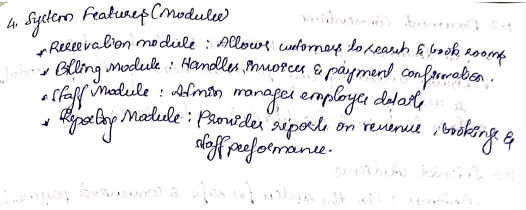 4. System Features (Modules)
* Reservation module : Allows customers to search & book rooms
* Billing Module : Handles invoices & payment confirmation.
* Staff Module : Admin manages employee details
* Reporting Module : Provides reports on revenue, booking &
staff performance.